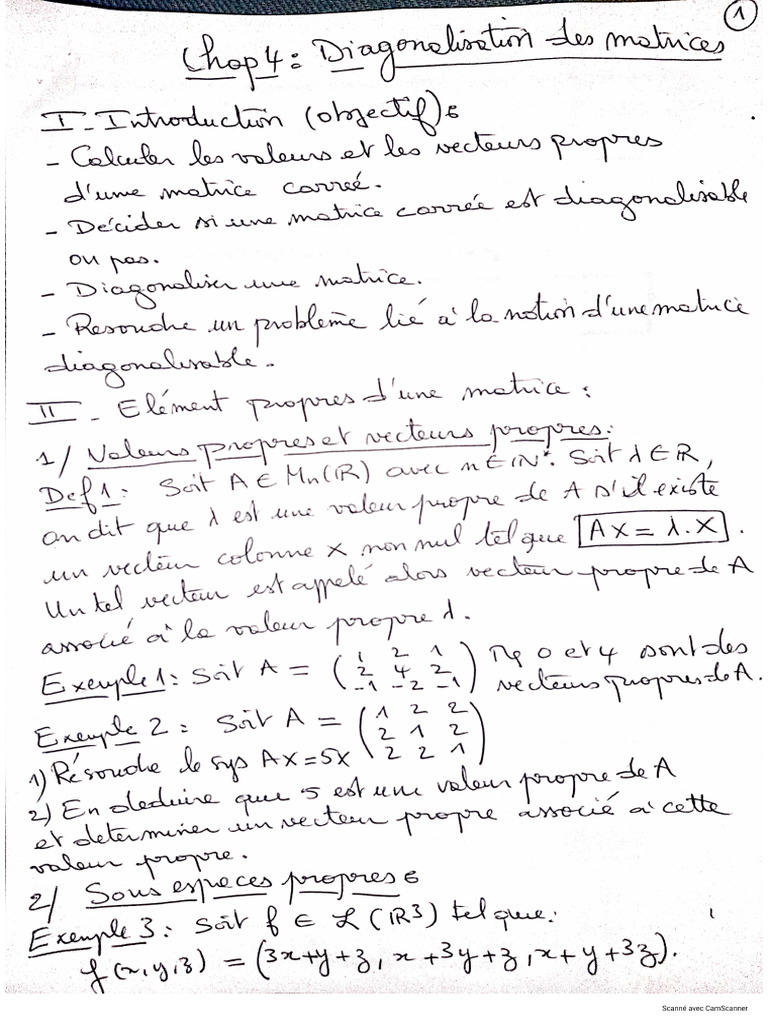 1
Chap 4 : Diagonalisation des matrices
I - Introduction (objectif) :
- Calculer les valeurs et les vecteurs propres
d'une matrice carreé.
- Décider si une matrice carrée est diagonalisable
ou pas.
- Diagonaliser une matrice.
- Resoudre un problème lié à la notion d'une matrice
diagonalisable.
II - Elément propres d'une matrice :
1/ Valeurs propres et vecteurs propres :
Def 1 : Soit A ∈ Mn(IR) avec n ∈ IN*. Soit λ ∈ IR,
on dit que λ est une valeur propre de A s'il existe
un vecteur colonne X non nul tel que AX = λ.X .
Un tel vecteur est appelé alors vecteur propre de A
associé à la valeur propre λ.
Exemple 1 : Soit A = ( 1 2 1 ; 2 4 2 ; -1 -2 -1 ) Mq 0 et 4 sont des
vecteurs propres de A.
Exemple 2 : Soit A = ( 1 2 2 ; 2 1 2 ; 2 2 1 )
1) Résoudre le sys AX = 5X
2) En deduire que 5 est une valeur propre de A
et determiner un vecteur propre associé à cette
valeur propre.
2/ Sous espaces propres :
Exemple 3 : Soit f ∈ L(IR³) tel que :
f(x,y,z) = (3x+y+z, x+3y+z, x+y+3z).
Scanné avec CamScanner